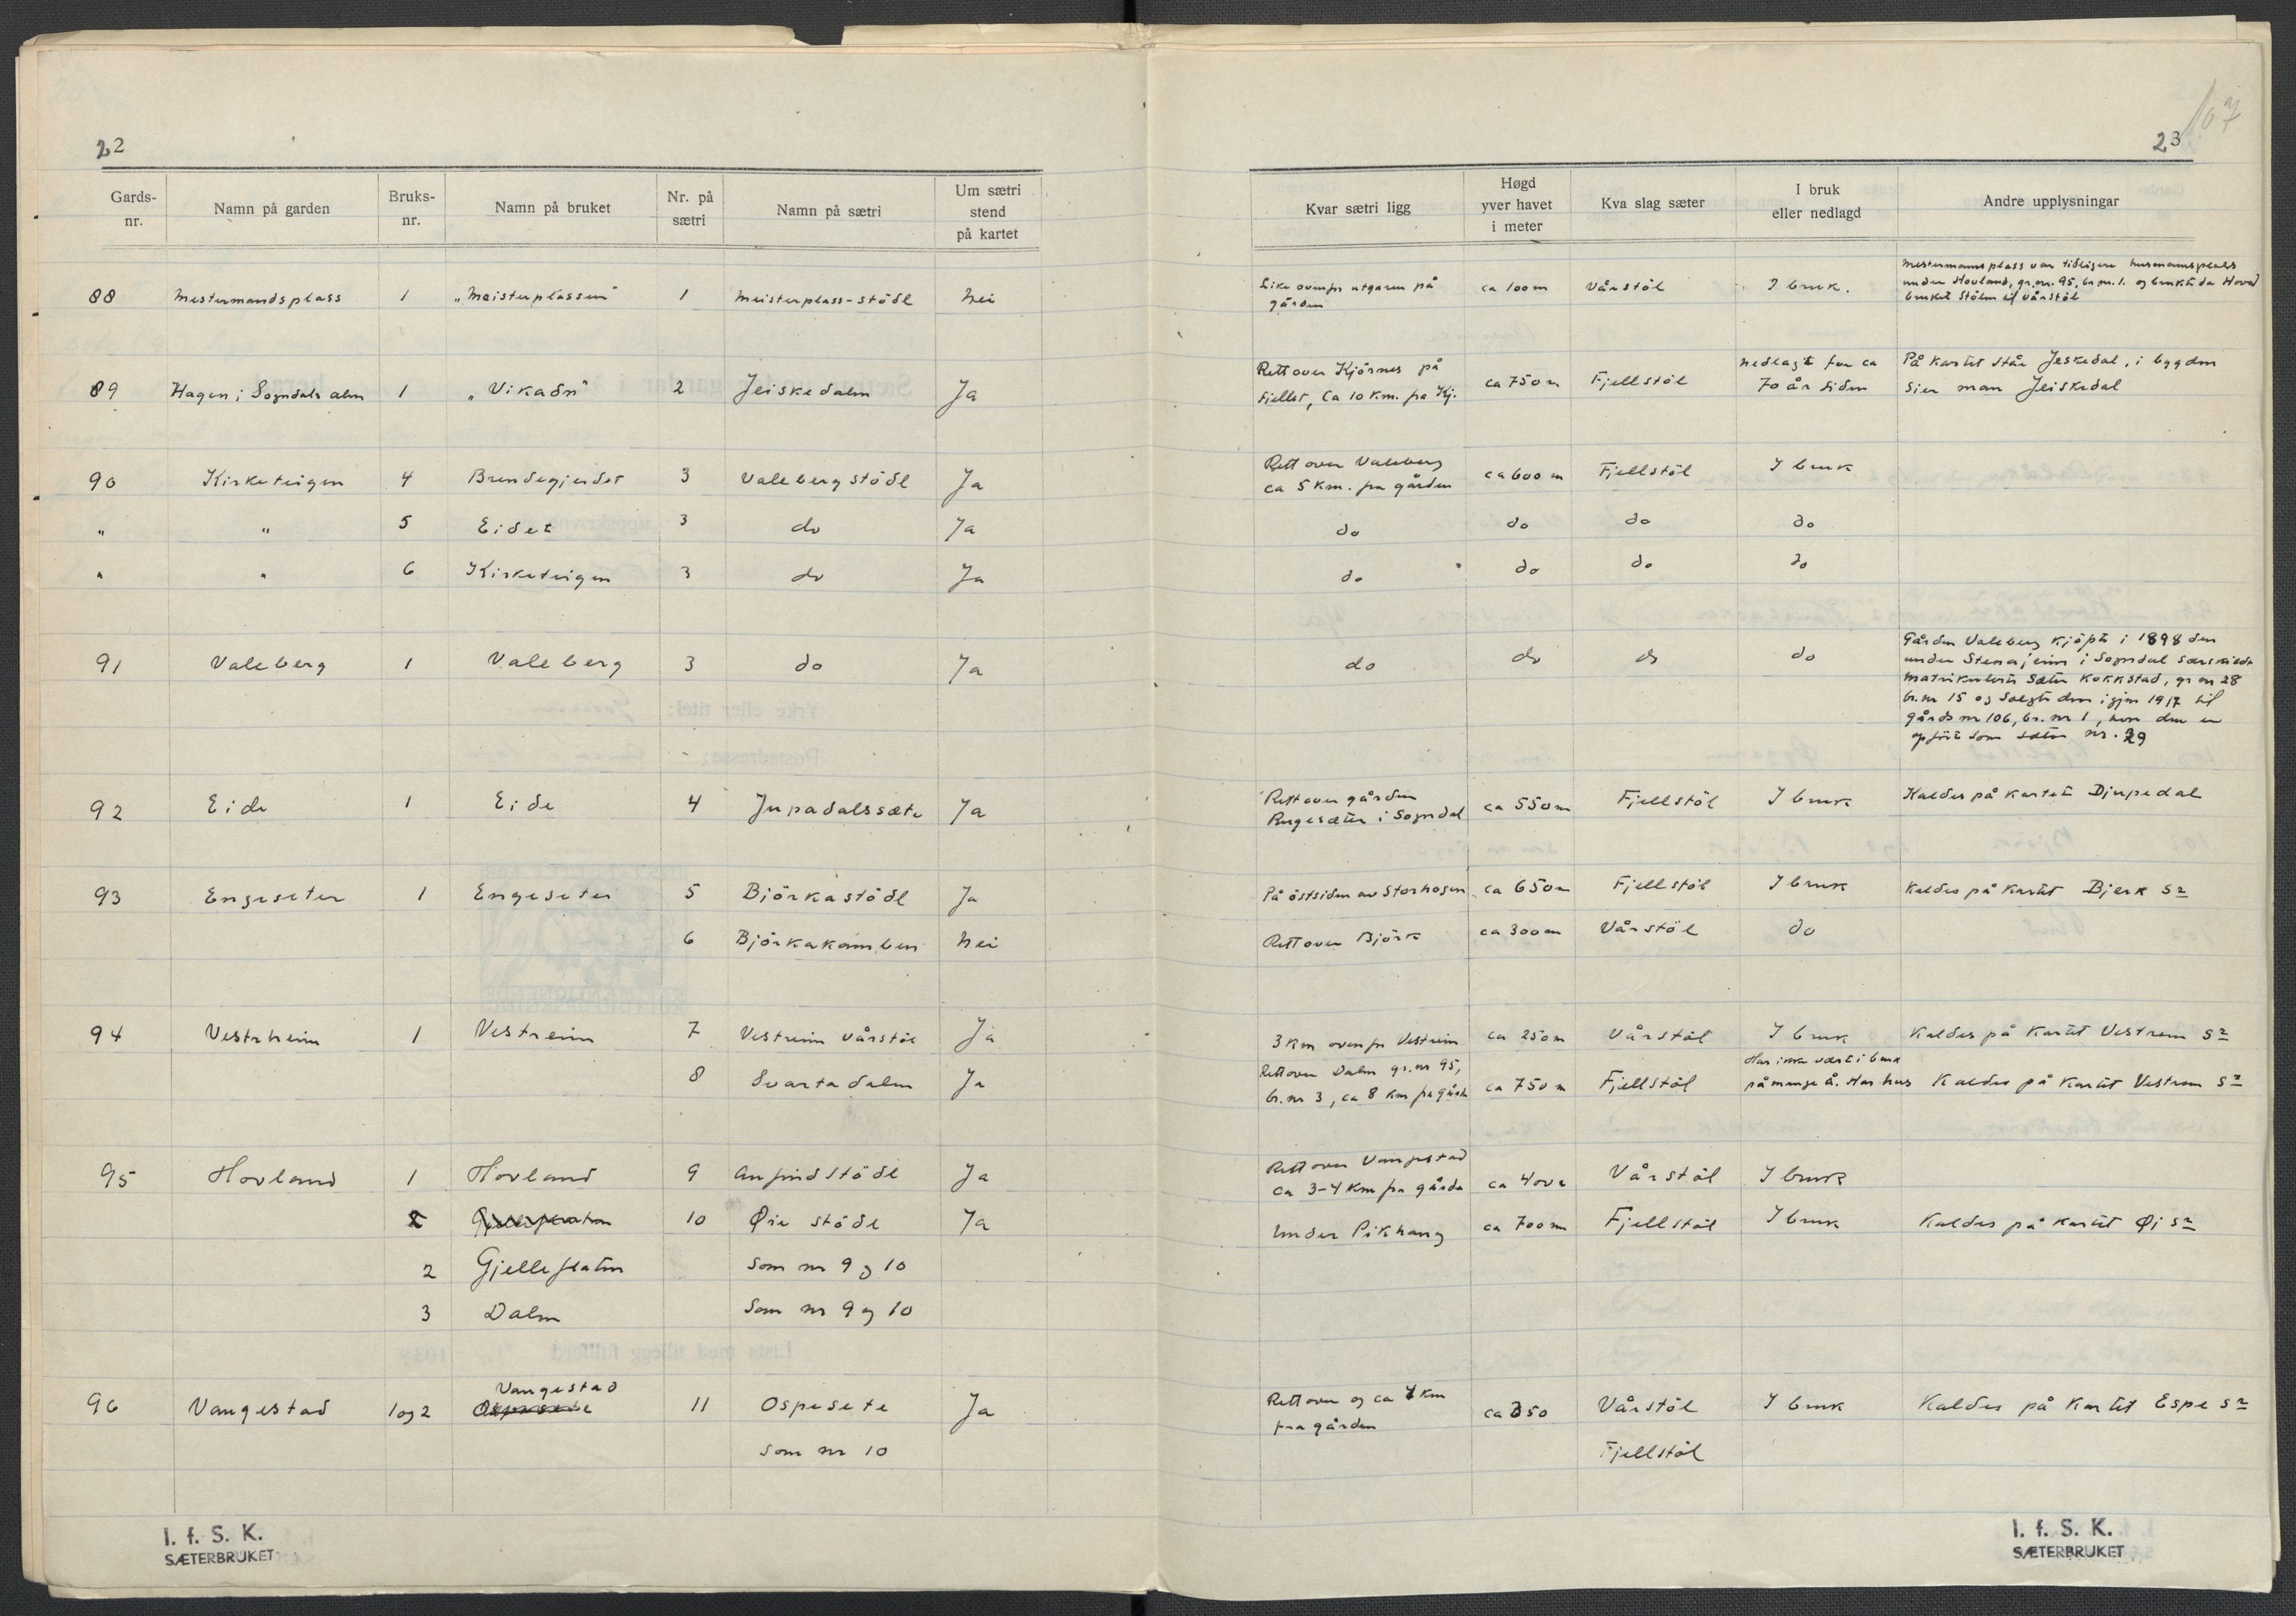 22
Gards-nr. Namn på garden Bruks-nr. Namn på bruket Nr. på sætri Namn på sætri Um sætri stend på kartet
88 Mestermandsplass 1 „Meisterplassen" 1 Meisterplass-stödl Nei
89 Hagen i Sogndalsdalen 1 „Vikadn" 2 Jeiskedalen Ja
90 Kirketeigen 4 Brendegjerdet 3 Valebergstödl Ja
" " 5 Eidet 3 do Ja
" " 6 Kirketeigen 3 do Ja
91 Valeberg 1 Valeberg 3 do Ja
92 Eide 1 Eide 4 Jupadalssæte Ja
93 Engeseter 1 Engeseter 5 Björkastödl Ja
6 Björkakamben Nei
94 Vestrheim 1 Vestreim 7 Vestreim vårstöl Ja
8 Svartadalen Ja
95 Hovland 1 Hovland 9 Anfindstödl Ja
10 Øie stödl Ja
2 Gjelleflaten Som nr 9 og 10
3 Dalen Som nr 9 og 10
Vangestad
96 Vangestad 1 og 2 11 Ospesete Ja
Som nr 10
I. f. S. K.
SÆTERBRUKET
107
23
Kvar sætri ligg Høgd yver havet i meter Kva slag sæter I bruk eller nedlagd Andre upplysningar
Like ovenfor utgaren på gården ca 100 m Vårstöl I bruk. Mestermannsplass var tidligere husmannsplass
under Hovland, gr.nr. 95, br.nr. 1. og brukte da Hoved
bruket Stölen til vårstöl
Rett over Kjörnes på ca 750 m Fjellstöl nedlagt for ca På kartet står Jeskedal, i bygden
fjellet, Ca 10 km. fra Kj. 70 år siden sier man Jeiskedal
Rett over Valeberg ca 600 m Fjellstöl I bruk
ca 5 km. fra gården
do do do do
do do do do
do do do do Gården Valeberg kjöpte i 1898 den
under Stenajerin i Sogndal særskildt
matrikulerte Sæter Kokkstad, gr nr 28
br.nr 15 og solgte den igjen 1917 til
gårds nr 106, br. nr 1, hvor den er
opfört som sæter nr. 29
Rett over gården ca 550 m Fjellstöl I bruk Kaldes på kartet Djupedal
Rugesæter i Sogndal
På östsiden av Storhogen ca 650 m Fjellstöl I bruk Kaldes på kartet Bjerk Sr
Rett over Björk ca 300 m Vårstöl do
3 km ovenfor Vestreim ca 250 m Vårstöl I bruk Kaldes på kartet Vestrem Sr
Rett over Dalen gr. nr 95, ca 750 m Fjellstöl Har ikke vært i bruk Kaldes på kartet Vestrem Sr
br. nr 3, ca 8 km fra gården på mange å. Har hus
Rett over Vangestad ca 400 Vårstöl I bruk
ca 3-4 km fra gården
Under Pikhaug ca 700 m Fjellstöl I bruk Kaldes på kartet Øi Sr
Rett over og ca 1 km ca 350 Vårstöl I bruk Kaldes på kartet Espe Sr
fra gården
Fjellstöl
I. f. S. K.
SÆTERBRUKET